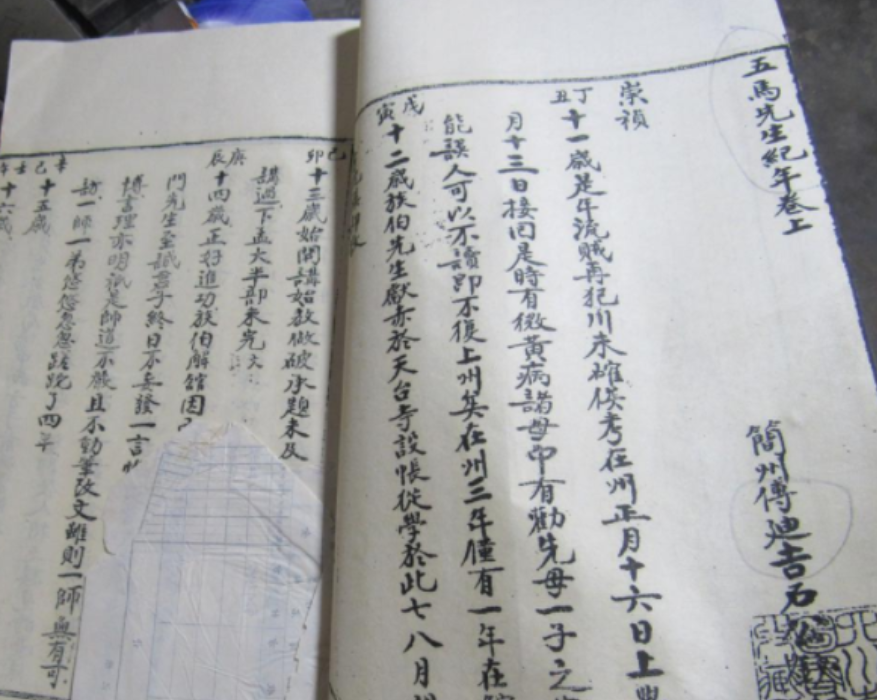 五馬先生紀年卷上
簡州傅迪吉石
崇禎
丁丑
十一歲是年流賊再犯川未確候考在州正月十六日上
月十三日接回是時有微黃病諸母中有勸先母一子之
能誤人可以不讀即不復上州矣在州三年僅有一年在
戊寅
十二歲族伯先生獻赤於天台寺設帳從學於此七八月
己卯
十三歲始開講始教做破承題未及
講過下孟大半部未完
庚辰
十四歲正好進功族伯解館因
門先生至誠君子終日不妄發一言
博書理亦明祇是師道不嚴且不動筆改文雖則一師無有可
訪一師一弟悠悠忽忽蹉跎了四年
辛巳
十五歲
壬午
十六歲